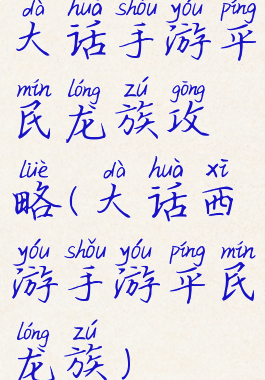 dà huà shǒu yóu píng
大话手游平
mín lóng zú gōng
民龙族攻
lüè dà huà xī
略(大话西
yóu shǒu yóu píng mín
游手游平民
lóng zú
龙族)